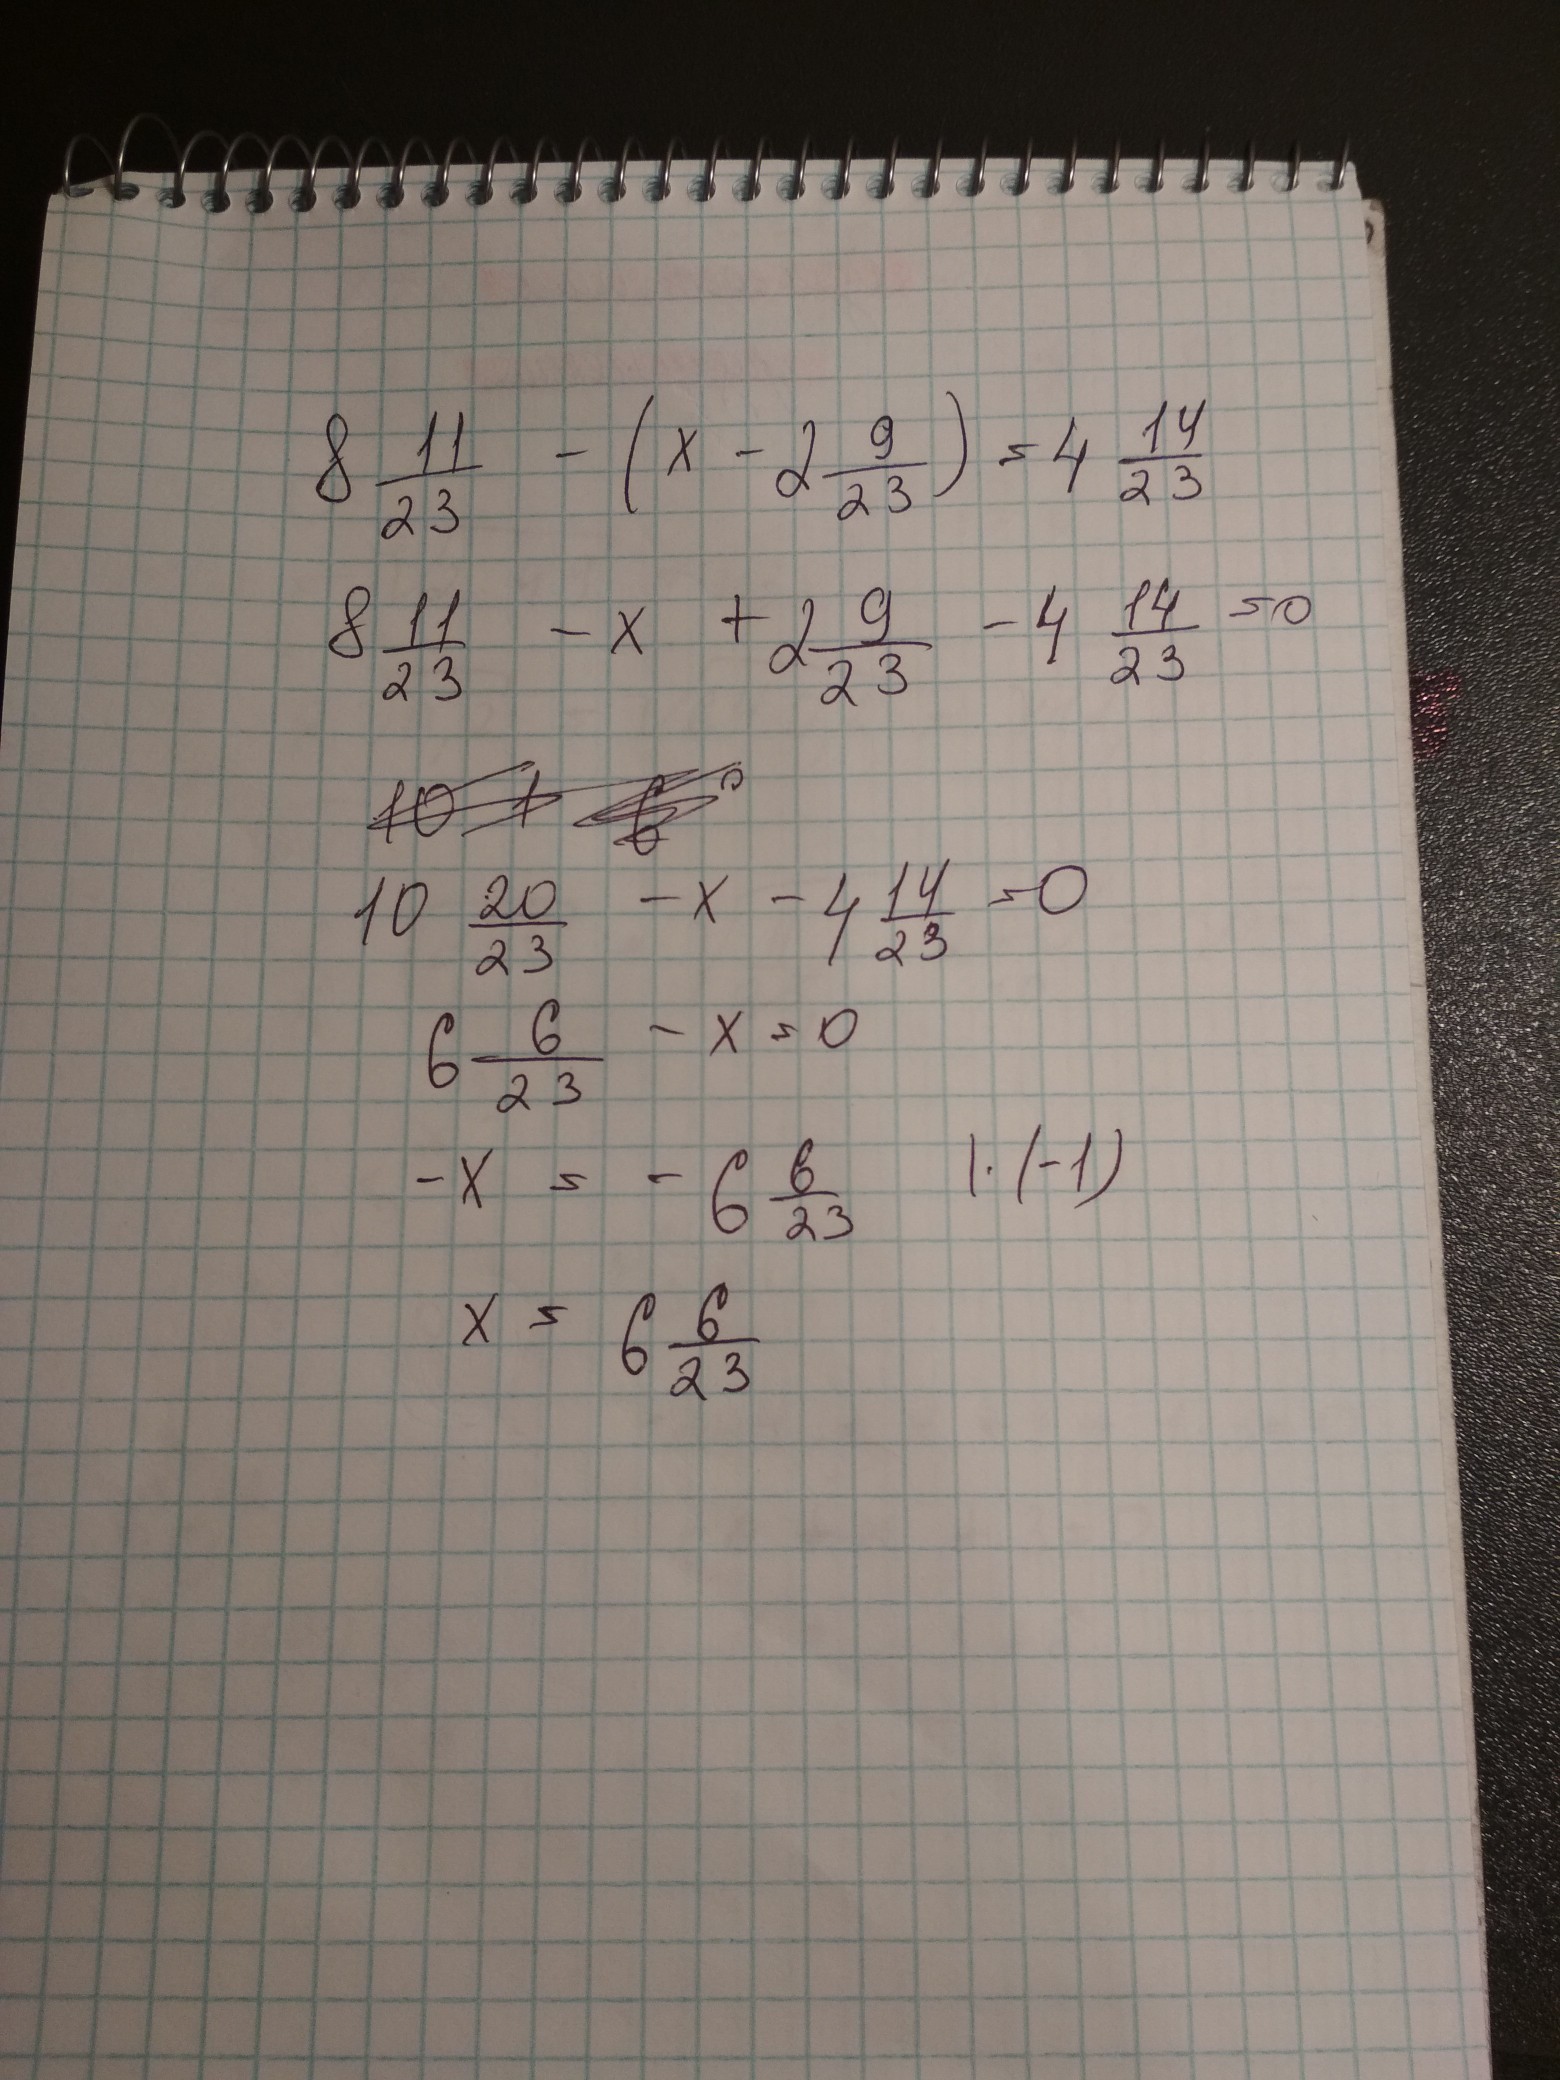 8 11/23 - (x - 2 9/23) = 4 14/23
8 11/23 - x + 2 9/23 - 4 14/23 = 0
10 20/23 - x - 4 14/23 = 0
6 6/23 - x = 0
-x = - 6 6/23 |·(-1)
x = 6 6/23